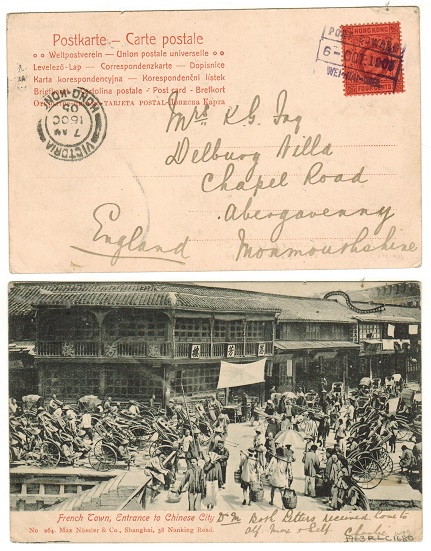 Postkarte – Carte postale
Weltpostverein – Union postale universelle
Levelező-Lap – Correspondenzkarte – Dopisnice
Karta korespondencyjna – Korespondenční lístek
cartolina postale – Post card – Brefkort
TARJETA POSTAL
HONG KONG
FOUR CENTS
PORT EDWARD
6-OCT.
WEI-HAI-WEI
HONG-KONG
7 AM
16 OC
VICTORIA
Mrs K.G. Jag
Delburg Villa
Chapel Road
Abergavenny
England Monmouthshire
French Town, Entrance to Chinese City
No 264. Max Nössler & Co., Shanghai, 38 Nanking Road.
D M Both Letters received love to
all